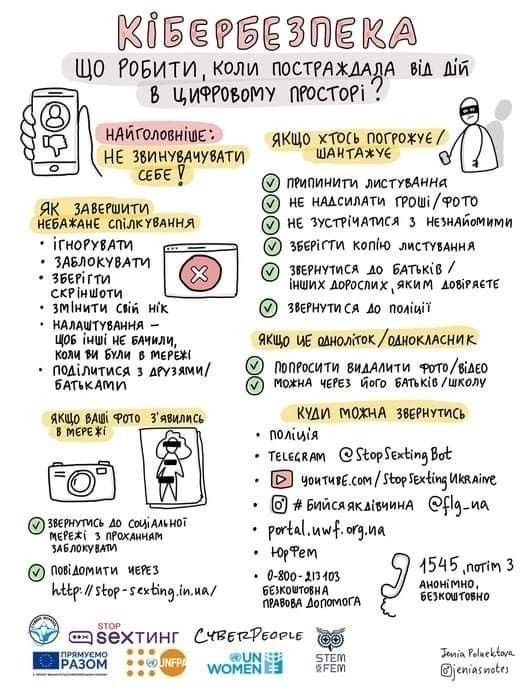 КІБЕРБЕЗПЕКА
ЩО РОБИТИ, КОЛИ ПОСТРАЖДАЛА ВІД ДІЙ
В ЦИФРОВОМУ ПРОСТОРІ?
НАЙГОЛОВНІШЕ:
НЕ ЗВИНУВАЧУВАТИ
СЕБЕ!
ЯК ЗАВЕРШИТИ
НЕБАЖАНЕ СПІЛКУВАННЯ
• ІГНОРУВАТИ
• ЗАБЛОКУВАТИ
• ЗБЕРІГТИ
СКРІНШОТИ
• ЗМІНИТИ СВІЙ НІК
• НАЛАШТУВАННЯ –
ЩОБ ІНШІ НЕ БАЧИЛИ,
КОЛИ ВИ БУЛИ В МЕРЕЖІ
• ПОДІЛИТИСЯ З ДРУЗЯМИ/
БАТЬКАМИ
ЯКЩО ВАШІ ФОТО З'ЯВИЛИСЬ
В МЕРЕЖІ
ЗВЕРНУТИСЬ ДО СОЦІАЛЬНОЇ
МЕРЕЖІ З ПРОХАННЯМ
ЗАБЛОКУВАТИ
ПОВІДОМИТИ ЧЕРЕЗ
http://stop-sexting.in.ua/
ЯКЩО ХТОСЬ ПОГРОЖУЄ/
ШАНТАЖУЄ
ПРИПИНИТИ ЛИСТУВАННЯ
НЕ НАДСИЛАТИ ГРОШІ/ФОТО
НЕ ЗУСТРІЧАТИСЯ З НЕЗНАЙОМИМИ
ЗБЕРІГТИ КОПІЮ ЛИСТУВАННЯ
ЗВЕРНУТИСЯ ДО БАТЬКІВ/
ІНШИХ ДОРОСЛИХ, ЯКИМ ДОВІРЯЄТЕ
ЗВЕРНУТИСЯ ДО ПОЛІЦІЇ
ЯКЩО ЦЕ ОДНОЛІТОК/ОДНОКЛАСНИК
ПОПРОСИТИ ВИДАЛИТИ ФОТО/ВІДЕО
МОЖНА ЧЕРЕЗ ЙОГО БАТЬКІВ/ШКОЛУ
КУДИ МОЖНА ЗВЕРНУТИСЬ
• ПОЛІЦІЯ
• TELEGRAM @StopSextingBot
• YOUTUBE.com/StopSextingUkraine
• #БИЙСЯЯКДІВЧИНА @flg_ua
• portal.uwf.org.ua
• ЮрФем
• 0-800-213103
БЕЗКОШТОВНА
ПРАВОВА ДОПОМОГА
1545, ПОТІМ 3
АНОНІМНО,
БЕЗКОШТОВНО
STOP
SEXТИНГ
CYBERPEOPLE
ПРЯМУЄМО
РАЗОМ
UNFPA
UN
WOMEN
STEM
is FEM
Jenia Poluektova
@jeniasnotes